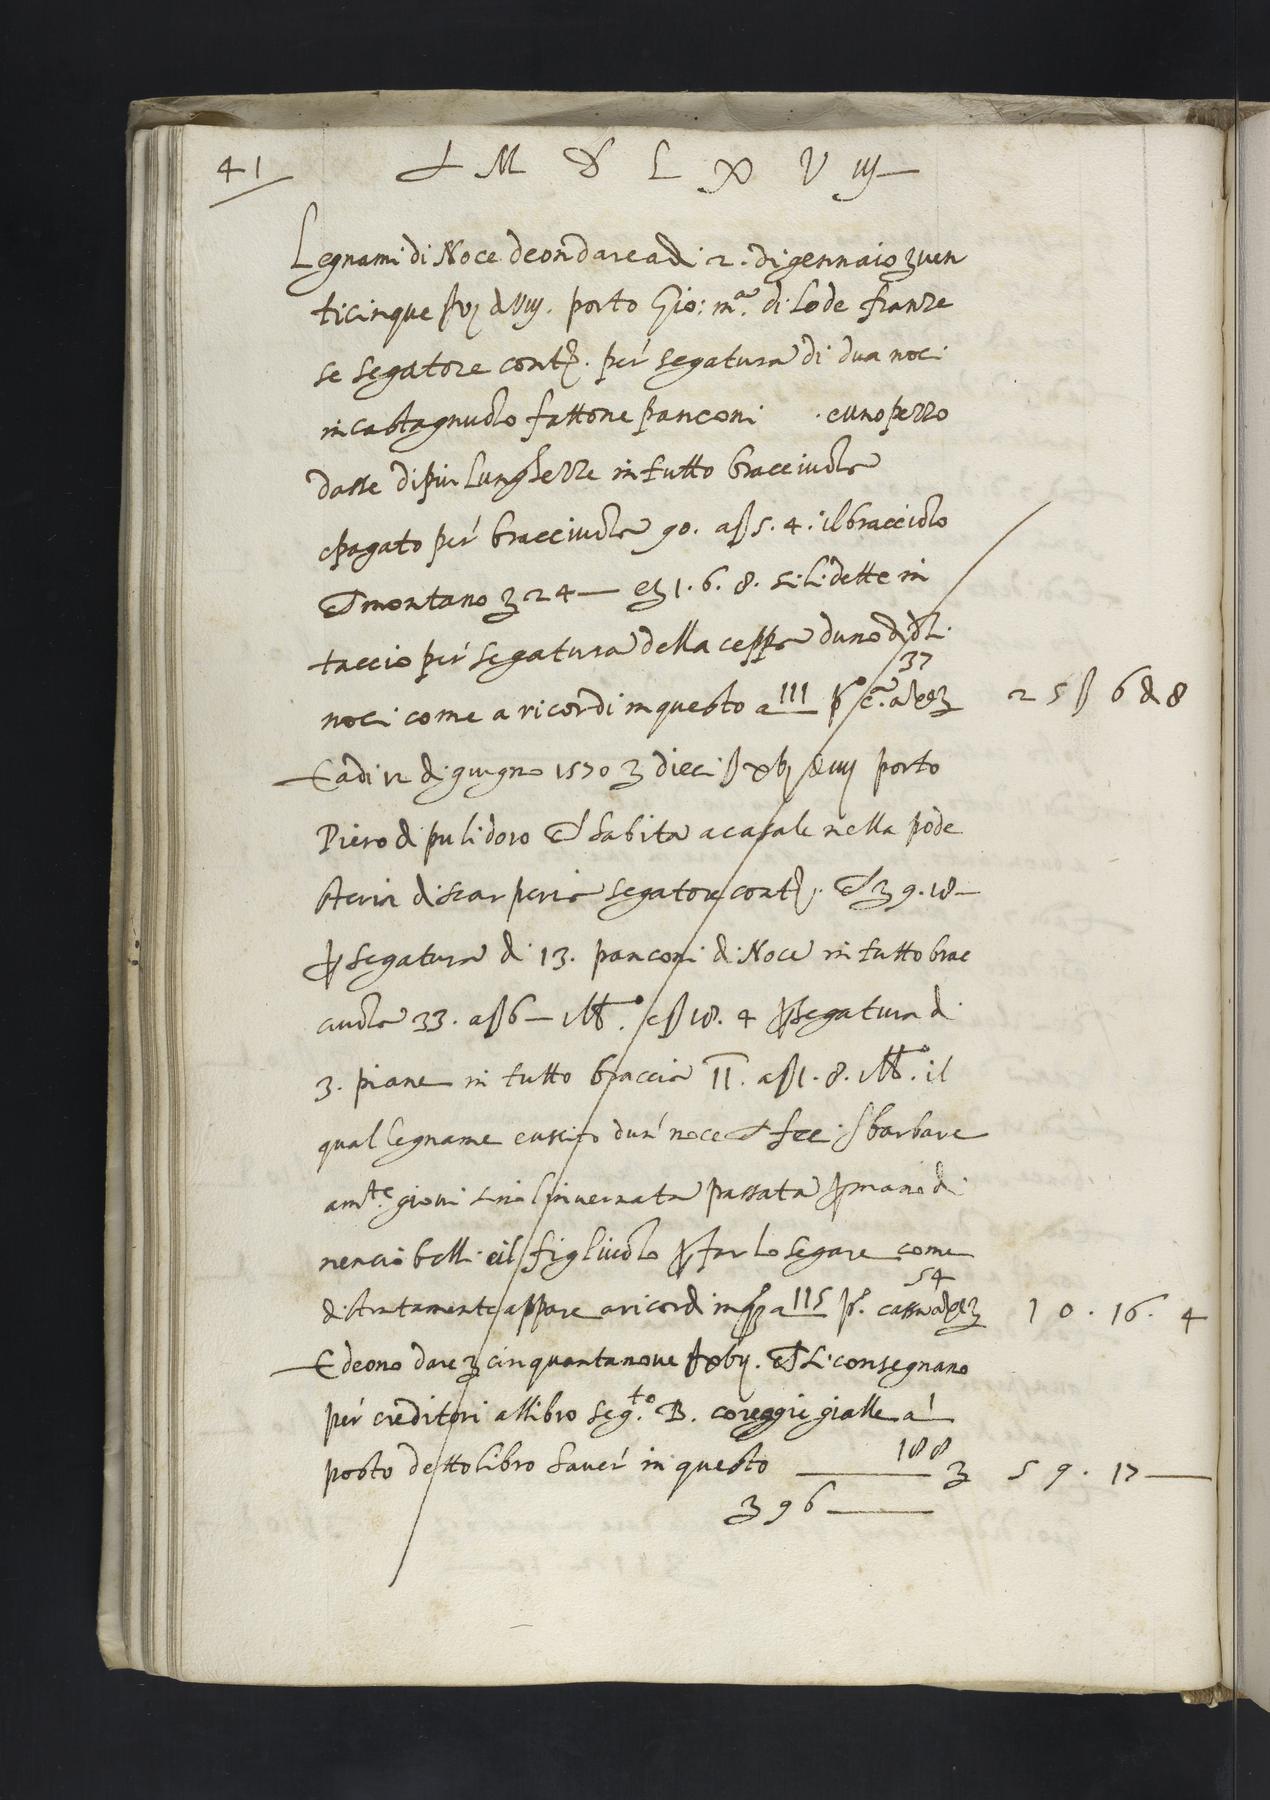 41
+ M D L X V iij
Legnami di Noce deon dare adi 2. di gennaio ʒ ven
ticinque ß vj d viij. porto Gio: m.ª di Lode franze
se segatore cont.ⁱ per segatura di dua noci
in castagnuolo fattone panconi . e uno pezzo
dasse di piu lunghezze in tutto bracciuola
e pagato per bracciuola 90. a ß 5. 4. il bracciolo
che montano ʒ 24 — e ʒ 1. 6. 8. si li dette in
taccio per segatura della ceppa duno di dti.
noci come a ricordi in questo a 111 pº cª a 37 ʒ 25 ß 6 d 8
E adi 12 di giugno 1570 ʒ dieci ß xvj d iiij porto
Piero di pulidoro che habita a casale nella pode
steria di scarperia segatore cont.ⁱ che ʒ 9. 18 —
per segatura di 13. panconi di Noce in tutto brac
ciuola 33. a ß 6 — il bº. e ß 18. 4 per segatura di
3. piane in tutto braccia 11. a ß 1. 8. il bº. il
qual legname e uscito dun noce che fece sbarbare
am.te giovi sino linvernata passata per mano di
nencio belli e il figliuolo per farlo segare come
distintamente appare a ricordi in qº a 115 pº. cassa a 54 ʒ 10. 16. 4
E deono dare ʒ cinquantanove ß xvij. che si consegnano
per creditori al libro seg.to B. coreggie gialle a
posto detto libro haver in questo — 188 ʒ 59. 17 —
ʒ 96 —